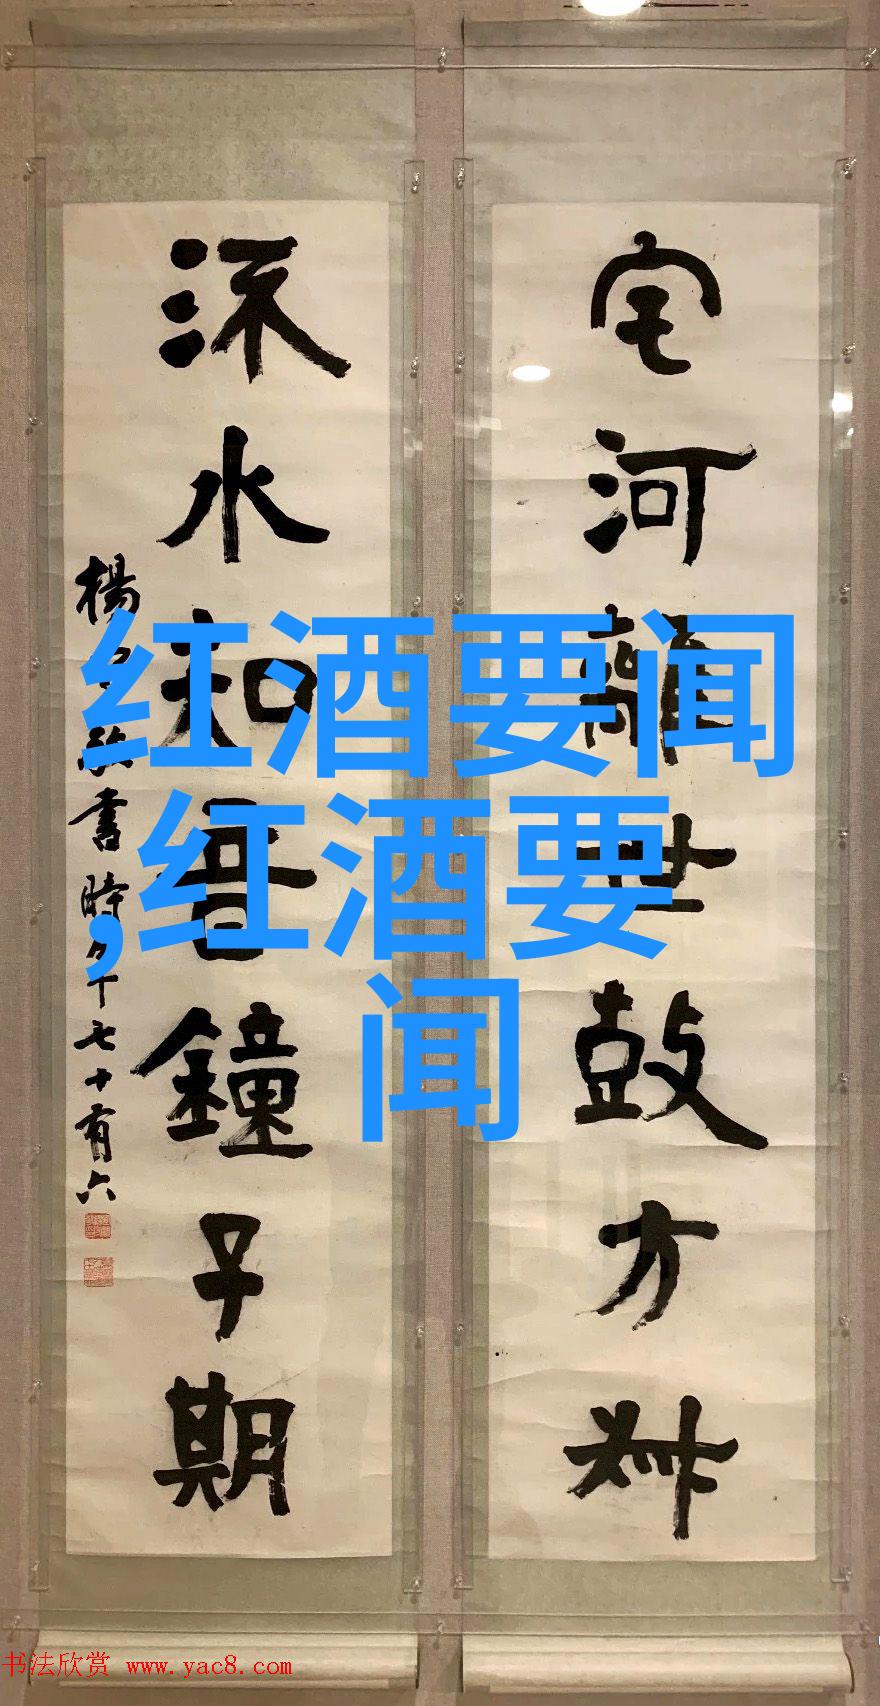 宅河離世鼓方叔
㳅水知音鐘子期
楊書時年七十有六
红酒要闻
,红酒要
闻
书法欣赏 www.yac8.com